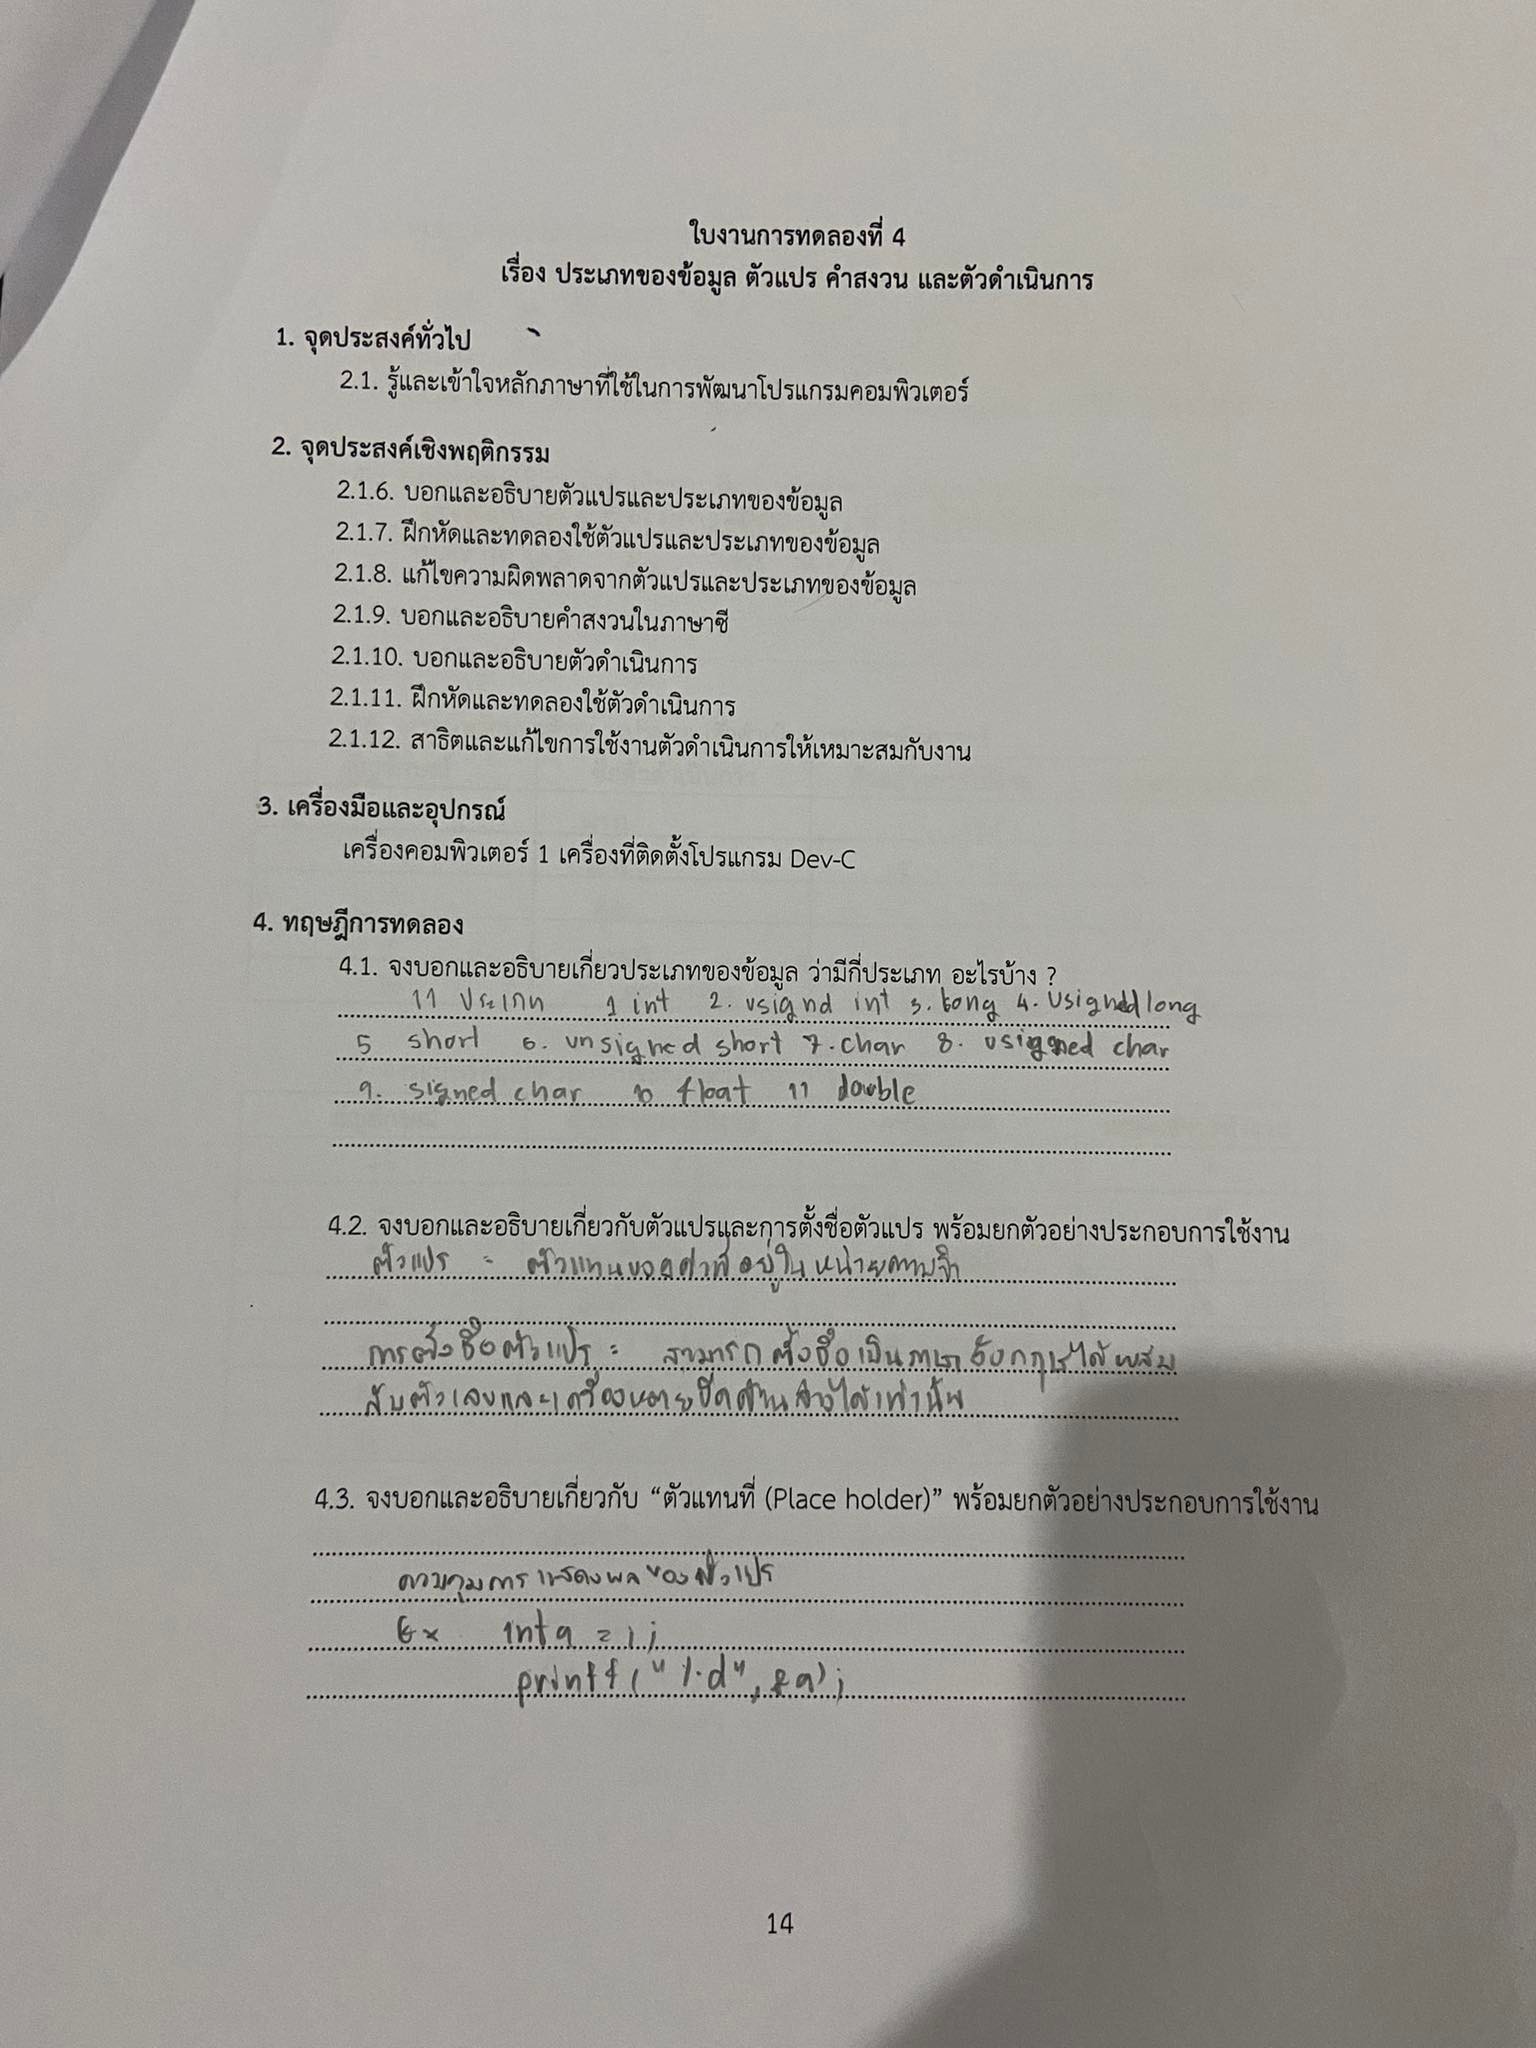 ใบงานการทดลองที่ 4
เรื่อง ประเภทของข้อมูล ตัวแปร คำสงวน และตัวดำเนินการ
1. จุดประสงค์ทั่วไป
2.1. รู้และเข้าใจหลักภาษาที่ใช้ในการพัฒนาโปรแกรมคอมพิวเตอร์
2. จุดประสงค์เชิงพฤติกรรม
2.1.6. บอกและอธิบายตัวแปรและประเภทของข้อมูล
2.1.7. ฝึกหัดและทดลองใช้ตัวแปรและประเภทของข้อมูล
2.1.8. แก้ไขความผิดพลาดจากตัวแปรและประเภทของข้อมูล
2.1.9. บอกและอธิบายคำสงวนในภาษาซี
2.1.10. บอกและอธิบายตัวดำเนินการ
2.1.11. ฝึกหัดและทดลองใช้ตัวดำเนินการ
2.1.12. สาธิตและแก้ไขการใช้งานตัวดำเนินการให้เหมาะสมกับงาน
3. เครื่องมือและอุปกรณ์
เครื่องคอมพิวเตอร์ 1 เครื่องที่ติดตั้งโปรแกรม Dev-C
4. ทฤษฎีการทดลอง
4.1. จงบอกและอธิบายเกี่ยวประเภทของข้อมูล ว่ามีกี่ประเภท อะไรบ้าง ?
11 ประเภท 1 int 2. usignd int 3. long 4. Usigned long
5 short 6. unsigned short 7. char 8. usigned char
9. signed char 10 float 11 double
4.2. จงบอกและอธิบายเกี่ยวกับตัวแปรและการตั้งชื่อตัวแปร พร้อมยกตัวอย่างประกอบการใช้งาน
ตัวแปร = ตัวแทนของค่าที่อยู่ในหน่วยความจำ
การตั้งชื่อตัวแปร = สามารถตั้งชื่อเป็นภาษาอังกฤษได้ผสม
กับตัวเลขและเครื่องหมายขีดด้านล่างได้เท่านั้น
4.3. จงบอกและอธิบายเกี่ยวกับ “ตัวแทนที่ (Place holder)” พร้อมยกตัวอย่างประกอบการใช้งาน
ควบคุมการแสดงผลของตัวแปร
Ex int a = 1;
printf("%d", &a);
14